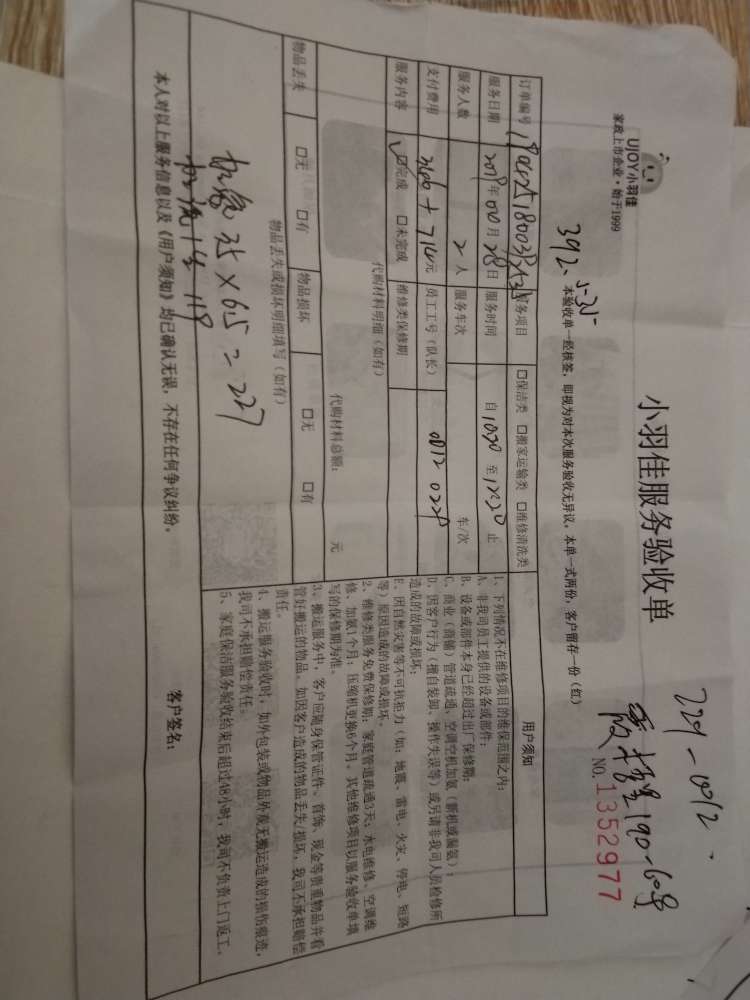 UJOY小羽佳
家政上市企业·始于1999
小羽佳服务验收单
NO.1352977
本验收单一经核签，即视为对本次服务验收无异议，本单一式两份，客户留存一份（红）
订单编号
服务项目 □保洁类 □搬家运输类 □维修清洗类
服务日期 年 月28日 服务时间 自1030至1230止
服务人数 2人 服务车次 车/次
支付费用 元 员工工号（队长） 0012 0229
服务内容 ☑完成 □未完成 维修类保修期
代购材料明细（如有）
代购材料总额： 元
物品丢失 □无 □有 物品损坏 □无 □有
物品丢失或损坏明细填写（如有）
加氟35×6.5=227
用户须知
1、下列情况不在维修项目的维保范围之内：
A、非我司员工提供的设备或部件；
B、设备或部件本身已经超过出厂保修期；
C、商业（商铺）管道疏通、空调空机加氨（新机或漏氨）；
D、因客户行为（擅自装卸、操作失误等）或另请非我司人员检修所
造成的故障或损坏；
E、因自然灾害等不可抗拒力（如：地震、雷电、火灾、停电、短路
等）原因造成的故障或损坏。
2、维修类服务免费保修期：家庭管道疏通3天；水电维修、空调维
修、加氨1个月；压缩机更换6个月。其他维修项目以服务验收单填
写的保修期为准。
3、搬运服务中，客户应随身保管证件、首饰、现金等贵重物品并看
管好搬运的物品。如因客户造成的物品丢失/损坏，我司不承担赔偿
责任。
4、搬运服务验收时，如外包装或物品外观无搬运造成的损伤痕迹，
我司不承担赔偿责任。
5、家庭保洁服务验收结束后超过48小时，我司不负责上门返工。
本人对以上服务信息以及《用户须知》均已确认无误，不存在任何争议纠纷。
客户签名：